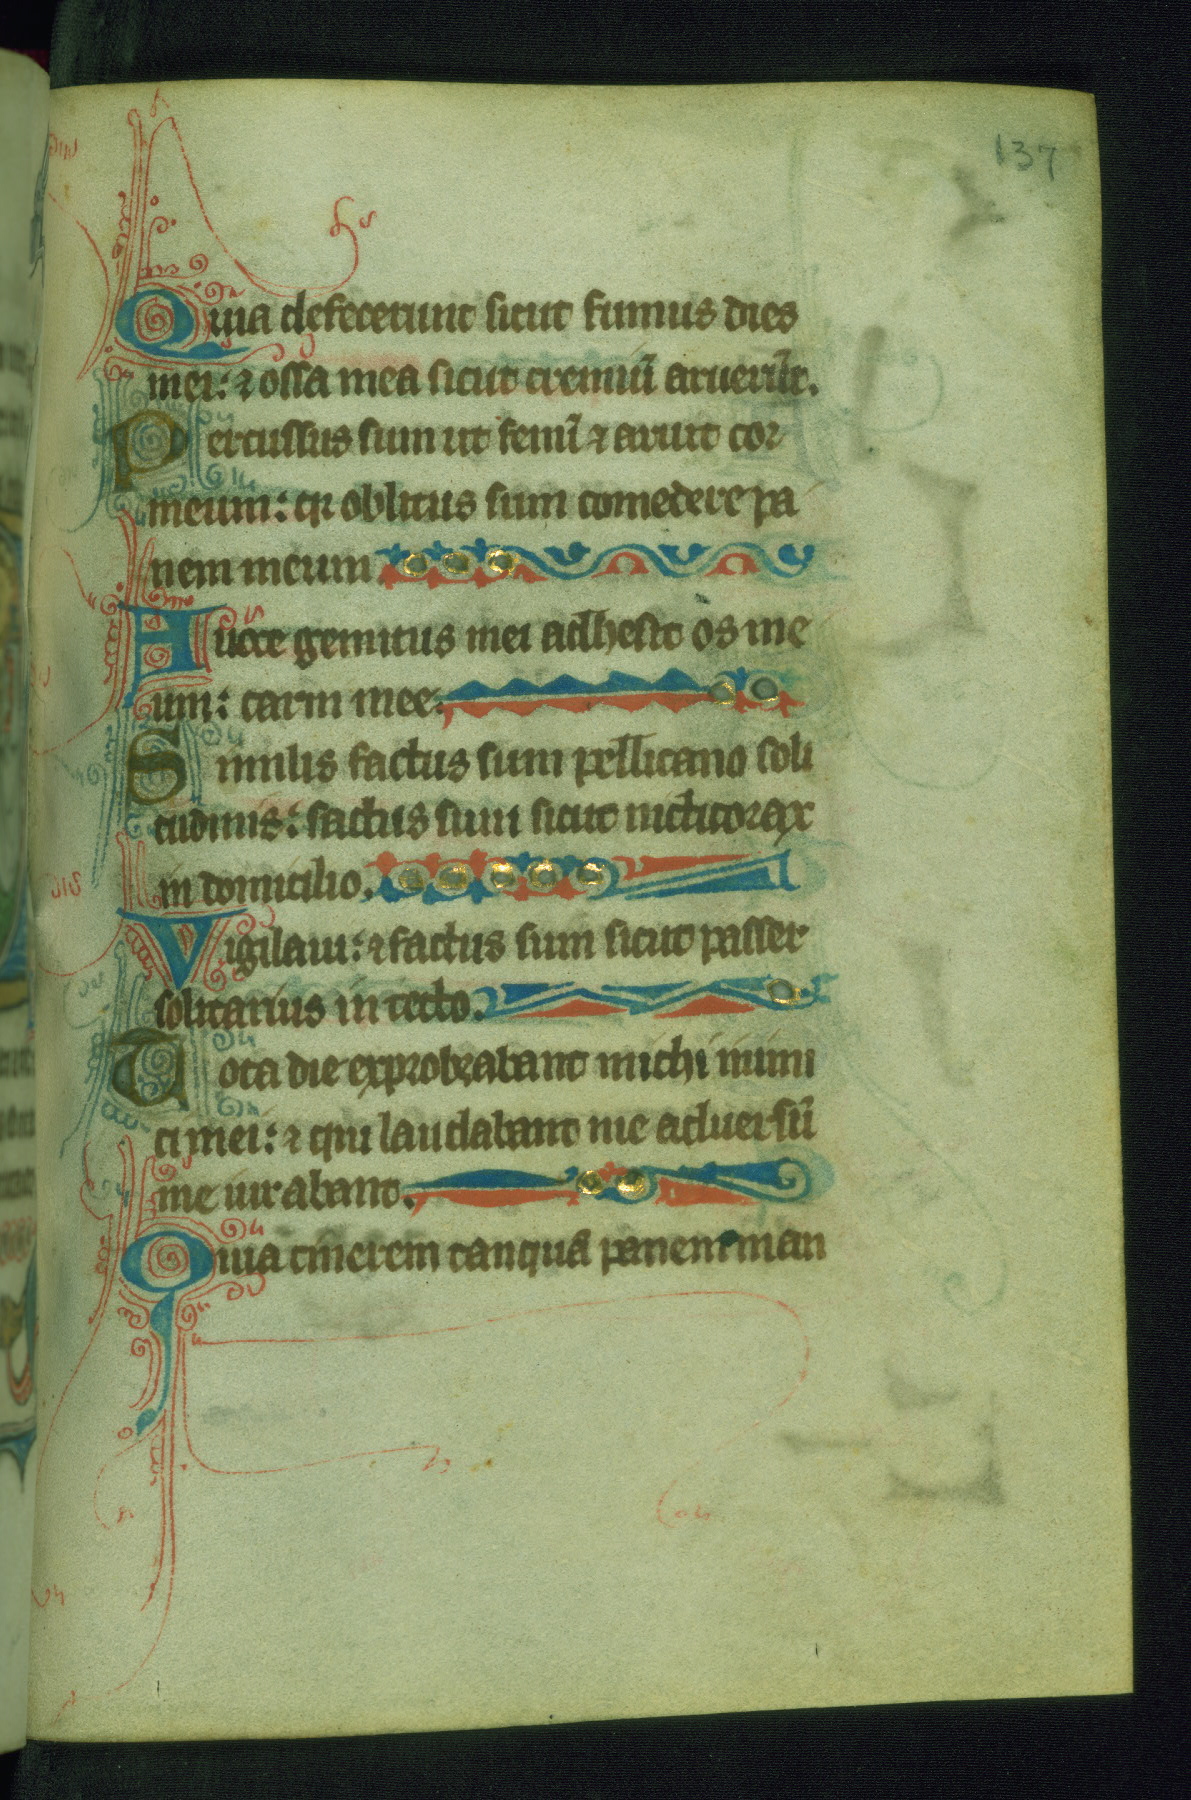 137
Quia defecerunt sicut fumus dies
mei: ⁊ ossa mea sicut cremiū aruerūt.
Percussus sum ut fenū ⁊ aruit cor
meum: qr oblitus sum comedere pa
nem meum
A uoce gemitus mei adhesit os me
um: carni mee.
Similis factus sum pellicano soli
tudinis: factus sum sicut nicticorax
in domicilio.
Vigilaui: ⁊ factus sum sicut passer
solitarius in tecto.
Tota die exprobrabant michi inimi
ci mei: ⁊ qui laudabant me aduersū
me iurabant.
Quia cinerem tanquā panem man